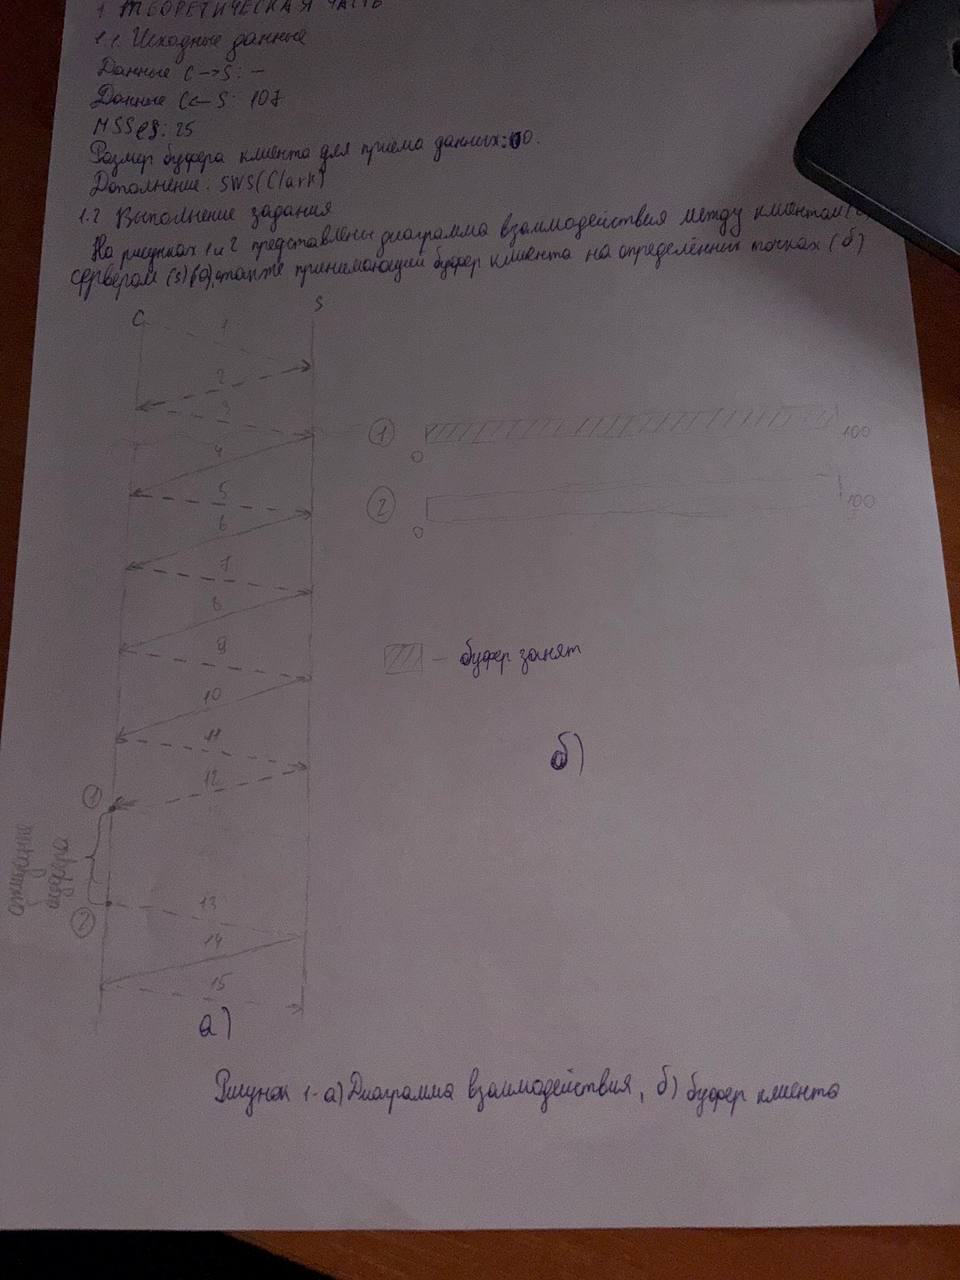 1 ТЕОРЕТИЧЕСКАЯ ЧАСТЬ
1.1. Исходные данные
Данные C→S: –
Данные C←S: 107
MSS CS: 25
Размер буфера клиента для приёма данных: 00.
Дополнение: SWS(Clark)
1.2 Выполнение задания
На рисунках 1 и 2 представлены диаграмма взаимодействия между клиентом
сервером (S) (а), также принимающий буфер клиента на определённых точках (б)
C
S
1
2
3
4
5
6
7
8
9
10
11
12
13
14
15
1
2
ожидание
а)
1
0
100
2
0
100
– буфер занят
б)
Рисунок 1 - а) Диаграмма взаимодействия, б) буфер клиента